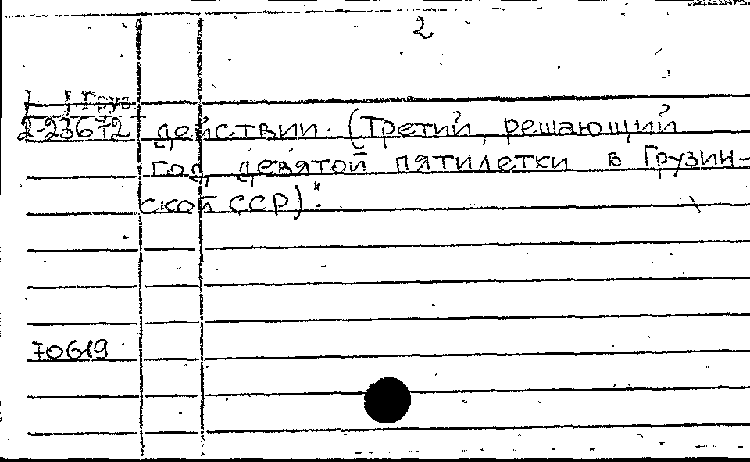 2
Груз
2-23672 действии. (Третий, решающий
год девятой пятилетки в Грузин-
ской ССР)".
70619